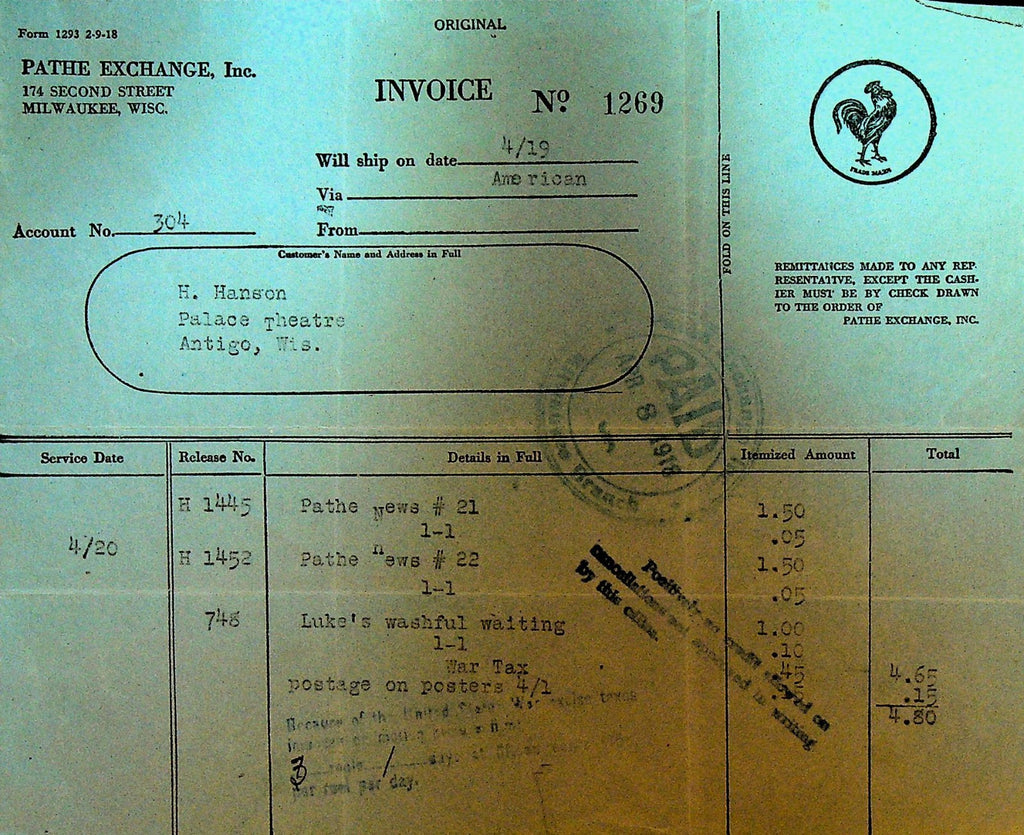 ORIGINAL
Form 1293 2-9-18
PATHE EXCHANGE, Inc.
174 SECOND STREET
MILWAUKEE, WISC.
INVOICE Nº 1269
Will ship on date 4/19
Via American
From
Account No. 304
Customer's Name and Address in Full
H. Hanson
Palace Theatre
Antigo, Wis.
FOLD ON THIS LINE
TRADE MARK
REMITTANCES MADE TO ANY REP-
RESENTATIVE, EXCEPT THE CASH-
IER MUST BE BY CHECK DRAWN
TO THE ORDER OF
PATHE EXCHANGE, INC.
PAID
8 1918
Branch
Service Date Release No. Details in Full Itemized Amount Total
H 1445 Pathe News # 21 1.50
1-1 .05
4/20
H 1452 Pathe news # 22 1.50
1-1 .05
748 Luke's washful waiting 1.00
1-1 .10
War Tax .45 4.65
postage on posters 4/1 .15
4.80
Because of the United States War
3 reels / day.
per reel per day.
Positively no credit allowed on
cancellations not approved in writing
by this office.